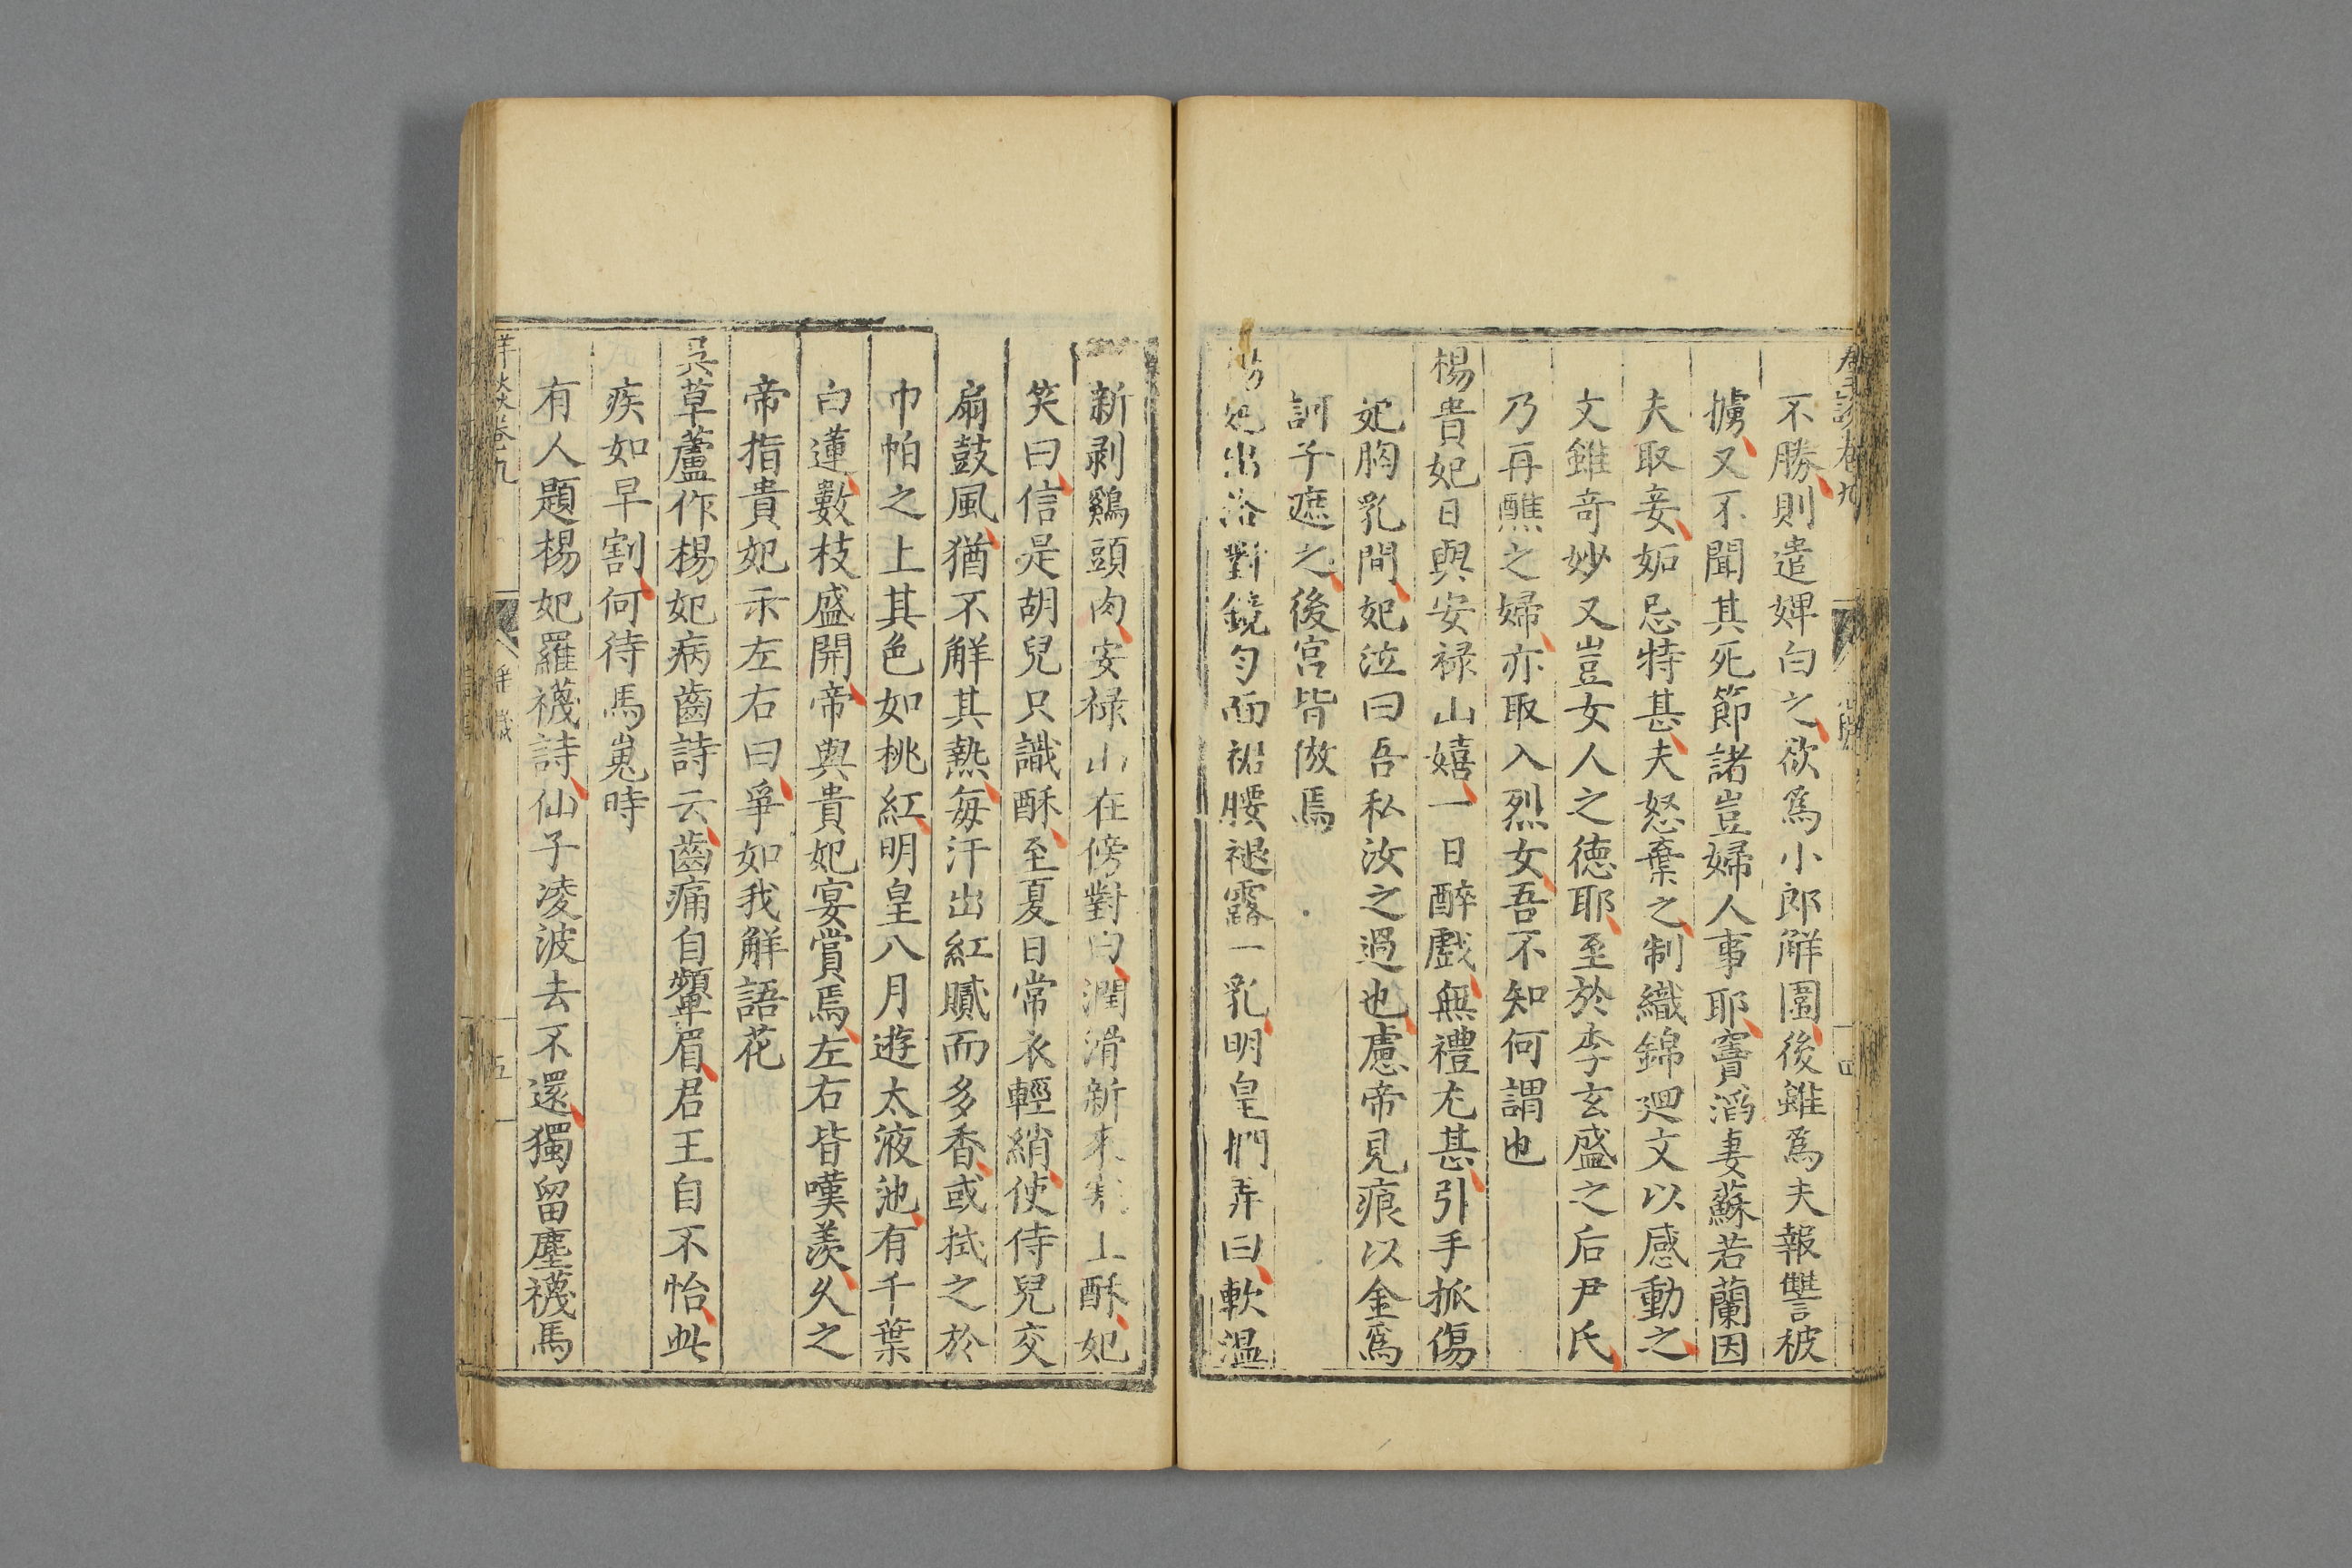 不勝則遣婢白之欲爲小郎解圍後雖爲夫報讐被
擄又不聞其死節諸豈婦人事耶竇滔妻蘇若蘭因
夫取妾妬忌特甚夫怒棄之制織錦廻文以感動之
文雖奇妙又豈女人之德耶至於李玄盛之后尹氏
乃再醮之婦亦取入烈女吾不知何謂也
楊貴妃日與安禄山嬉一日醉戲無禮尤甚引手抓傷
妃胸乳間妃泣曰吾私汝之過也慮帝見痕以金爲
訶子遮之後宮皆傚焉
妃出浴對鏡勻面裙腰褪露一乳明皇捫弄曰軟温
新剥鷄頭肉安禄山在傍對曰潤滑新來塞上酥妃
笑曰信是胡兒只識酥至夏日常衣輕綃使侍兒交
扇鼓風猶不解其熱每汗出紅膩而多香或拭之於
巾帕之上其色如桃紅明皇八月遊太液池有千葉
白蓮數枝盛開帝與貴妃宴賞焉左右皆嘆羨久之
帝指貴妃示左右曰爭如我解語花
吳草蘆作楊妃病齒詩云齒痛自顰眉君王自不怡此
疾如早割何待馬嵬時
有人題楊妃羅襪詩仙子凌波去不還獨留塵襪馬
卷九
五